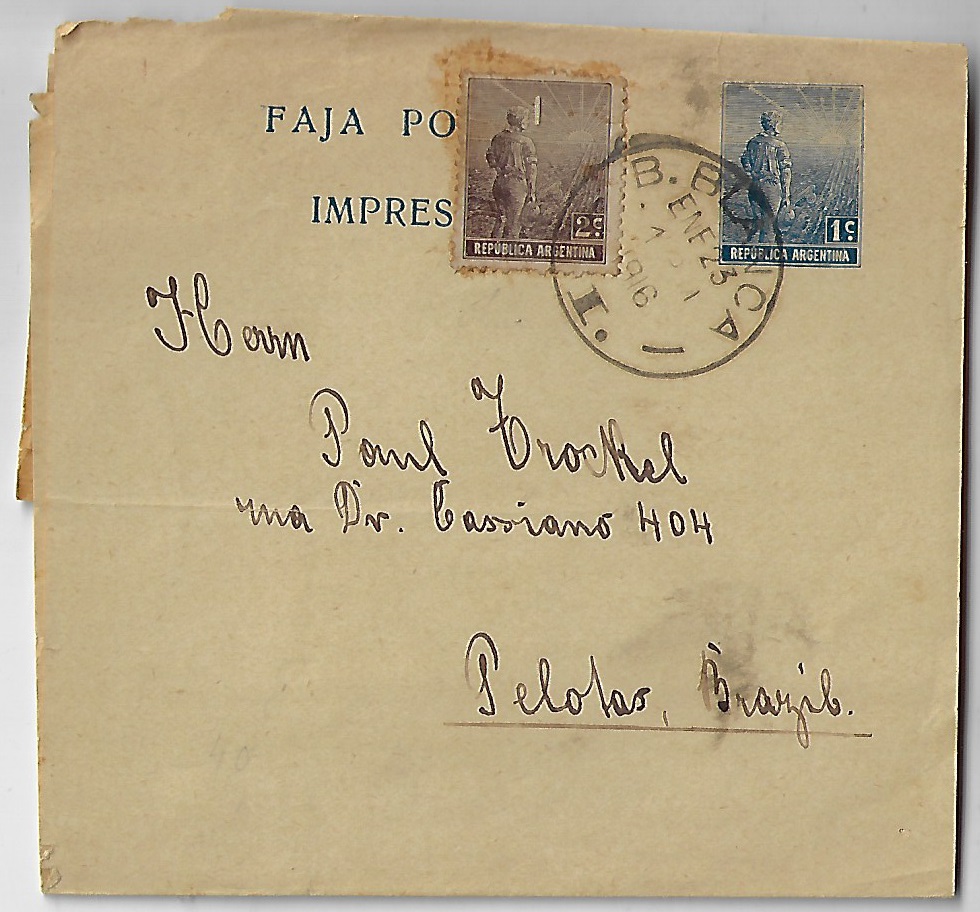 FAJA PO
IMPRES
2c.
REPÚBLICA ARGENTINA
1c.
REPÚBLICA ARGENTINA
B. BLANCA
ENE 23
1916
I.
Herrn
Paul Trockel
rua Dr. Cassiano 404
Pelotas, Brazil.
40